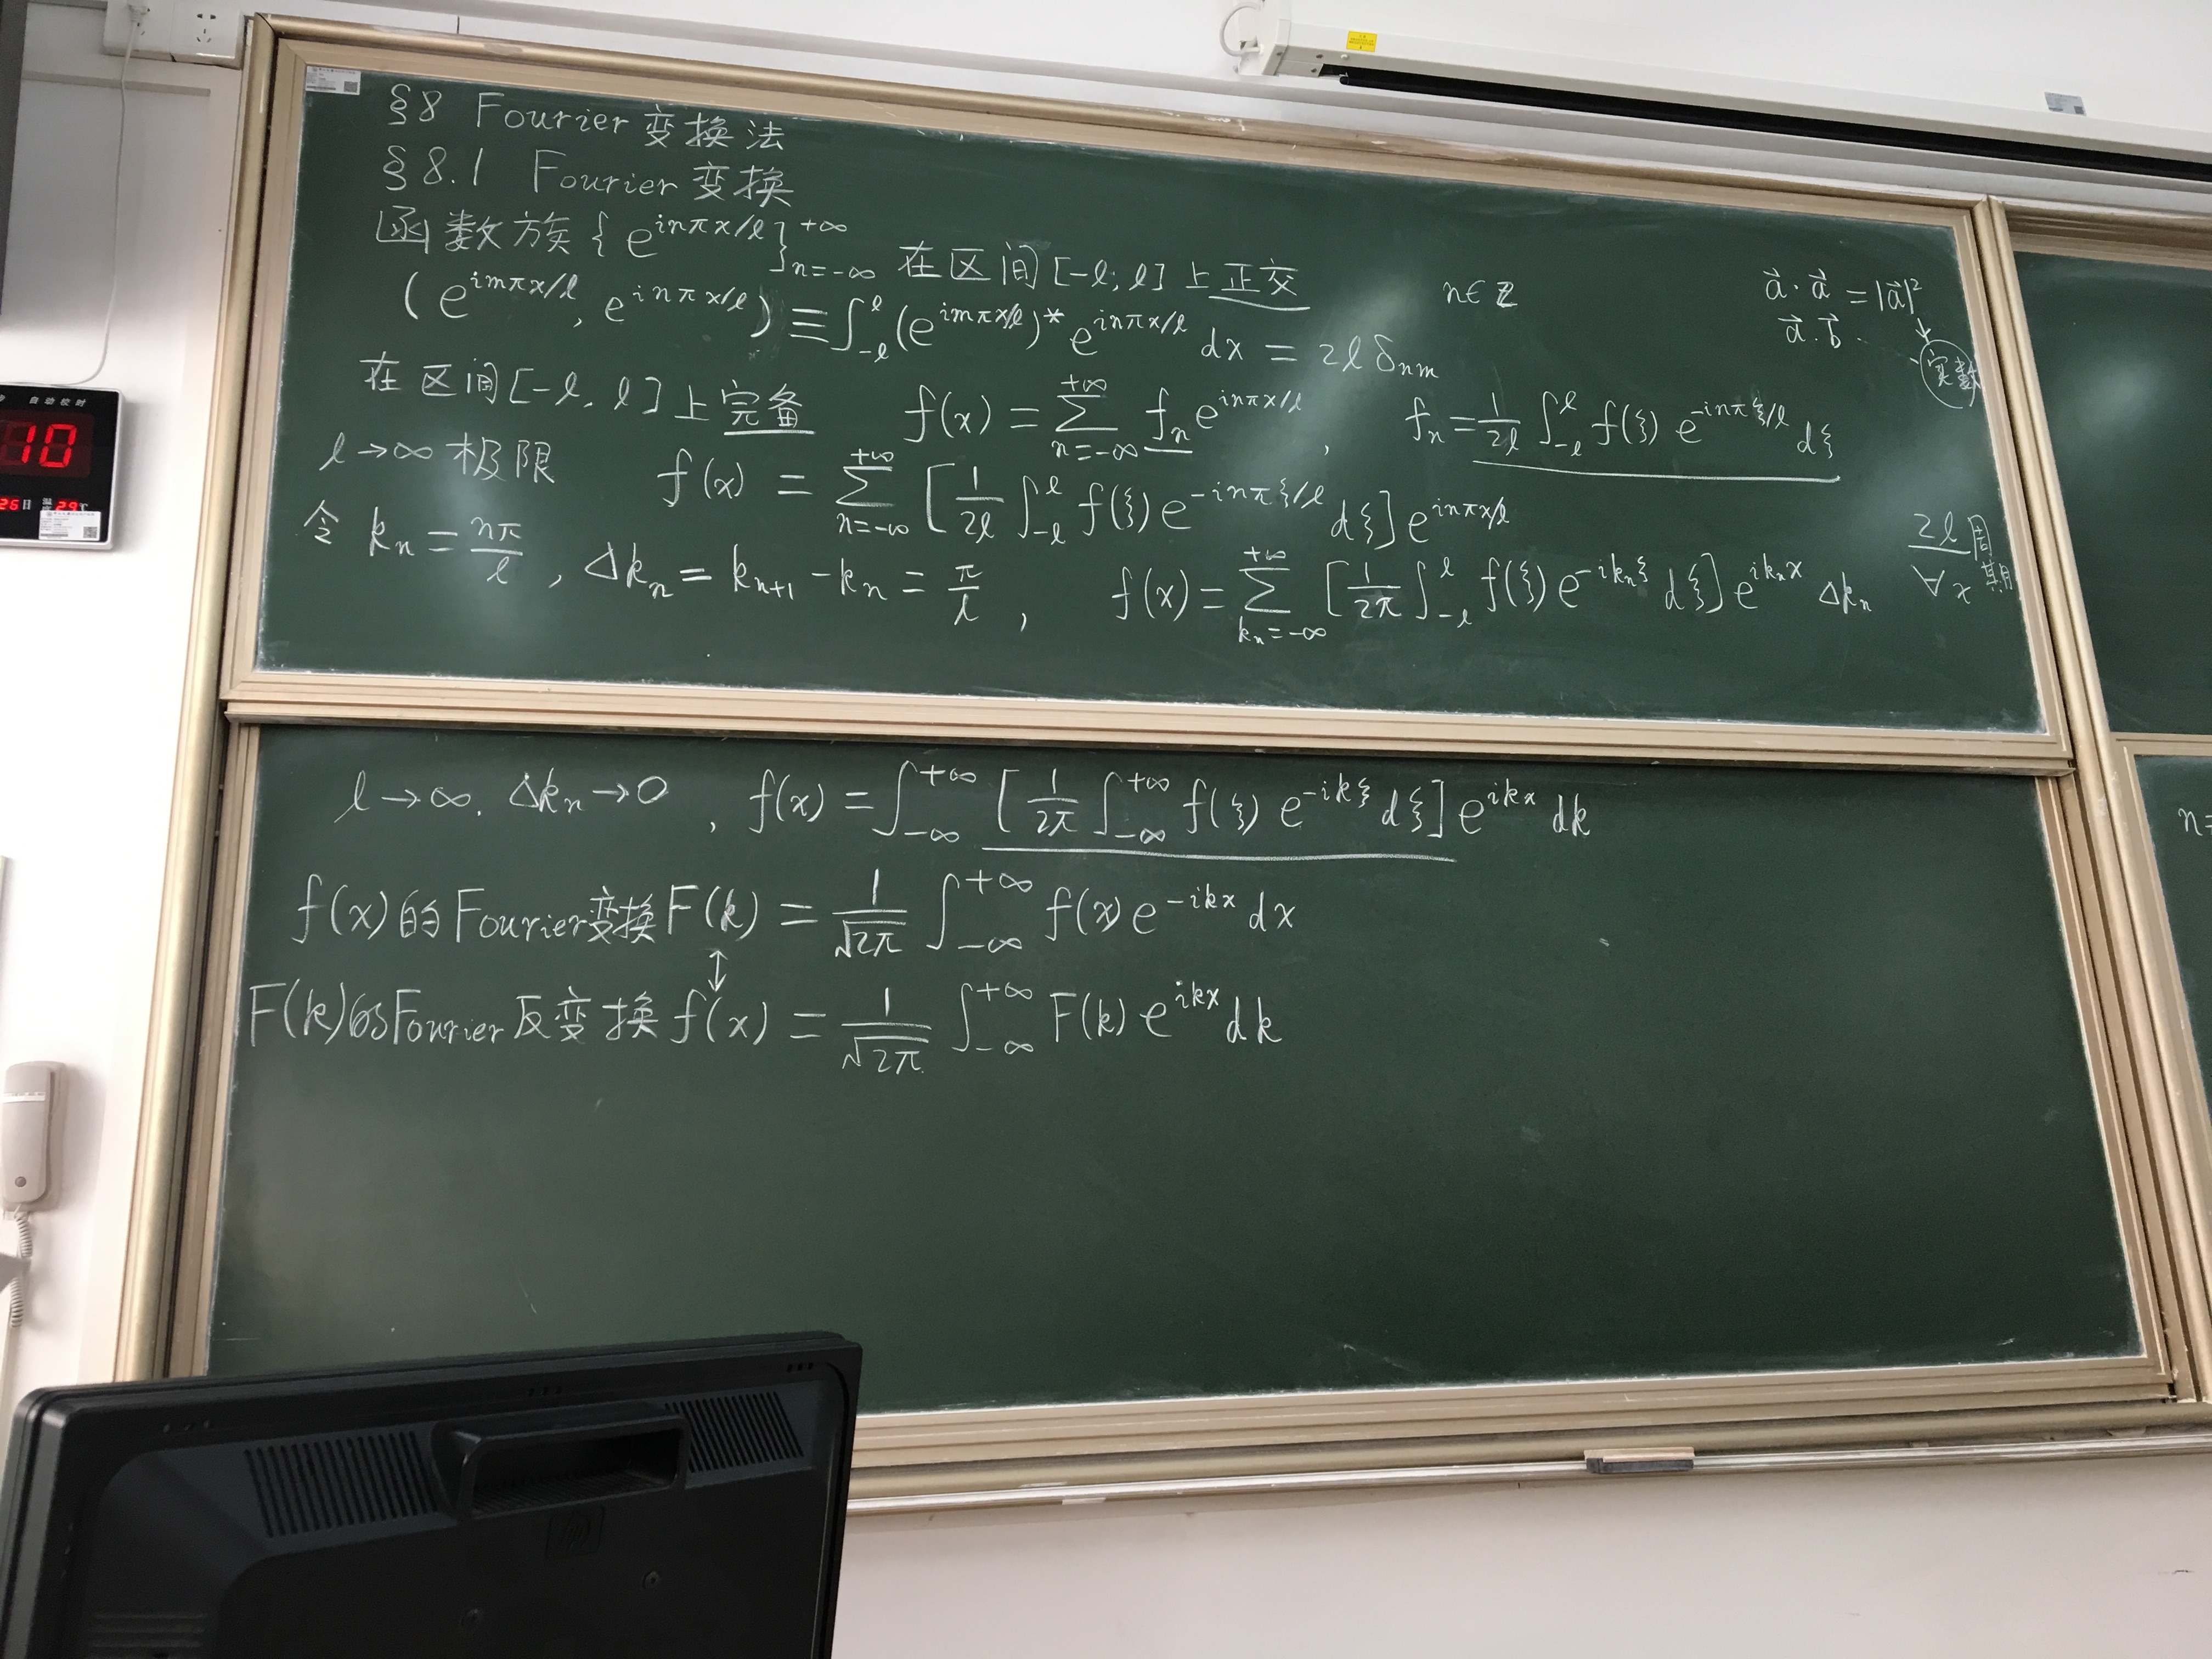 §8 Fourier 变换法
§8.1 Fourier 变换
函数族 {e^{inπx/l}}_{n=-∞}^{+∞} 在区间 [-l, l] 上正交
n∈ℤ
(e^{imπx/l}, e^{inπx/l}) ≡ ∫_{-l}^{l} (e^{imπx/l})* e^{inπx/l} dx = 2l δ_{nm}
a⃗·a⃗ = |a⃗|²
a⃗·b⃗
实数
在区间[-l, l]上完备 f(x) = Σ_{n=-∞}^{+∞} f_n e^{inπx/l}, f_n = 1/2l ∫_{-l}^{l} f(ξ) e^{-inπξ/l} dξ
l→∞ 极限 f(x) = Σ_{n=-∞}^{+∞} [1/2l ∫_{-l}^{l} f(ξ) e^{-inπξ/l} dξ] e^{inπx/l}
令 k_n = nπ/l, Δk_n = k_{n+1} - k_n = π/l, f(x) = Σ_{k_n=-∞}^{+∞} [1/2π ∫_{-l}^{l} f(ξ) e^{-ik_nξ} dξ] e^{ik_nx} Δk_n
2l 周期
∀x
l→∞. Δk_n→0, f(x) = ∫_{-∞}^{+∞} [1/2π ∫_{-∞}^{+∞} f(ξ) e^{-ikξ} dξ] e^{ikx} dk
f(x)的Fourier变换F(k) = 1/√2π ∫_{-∞}^{+∞} f(x) e^{-ikx} dx
↕
F(k)的Fourier反变换 f(x) = 1/√2π ∫_{-∞}^{+∞} F(k) e^{ikx} dk
n=
自动校时
10
26日 温度 29℃
hp